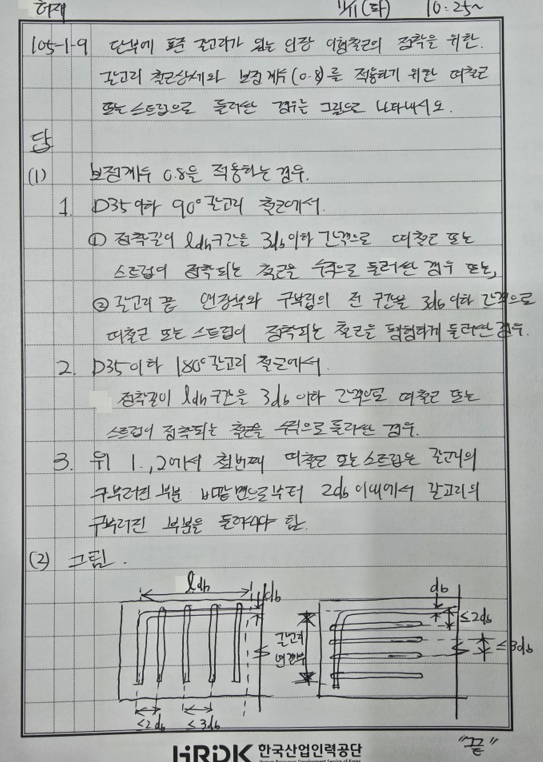 허재 11/11(화) 10:25~
105-1-9 단부에 표준 갈고리가 있는 인장 이형철근의 정착을 위한
갈고리 철근상세와 보정계수(0.8)를 적용하기 위한 띠철근
또는 스트럽으로 둘러싼 경우는 그림으로 나타내시오.
답
(1) 보정계수 0.8을 적용하는 경우.
1. D35이하 90° 갈고리 철근에서.
① 정착길이 ldh구간을 3db이하 간격으로 띠철근 또는
스트럽이 정착되는 철근을 수직으로 둘러싼 경우 또는,
② 갈고리 끝 연장부와 구부림의 전 구간을 3db이하 간격으로
띠철근 또는 스트럽이 정착되는 철근을 평행하게 둘러싼 경우.
2. D35이하 180° 갈고리 철근에서.
정착길이 ldh구간을 3db이하 간격으로 띠철근 또는
스트럽이 정착되는 철근을 수직으로 둘러싼 경우.
3. 위 1.,2에서 첫번째 띠철근 또는 스트럽은 갈고리의
구부러진 부분 바깥면으로부터 2db이내에서 갈고리의
구부러진 부분을 둘러싸야 함.
(2) 그림.
ldh db db
≤2db
갈고리
연장부
≤3db
≤2db ≤3db
"끝"
HRDK 한국산업인력공단